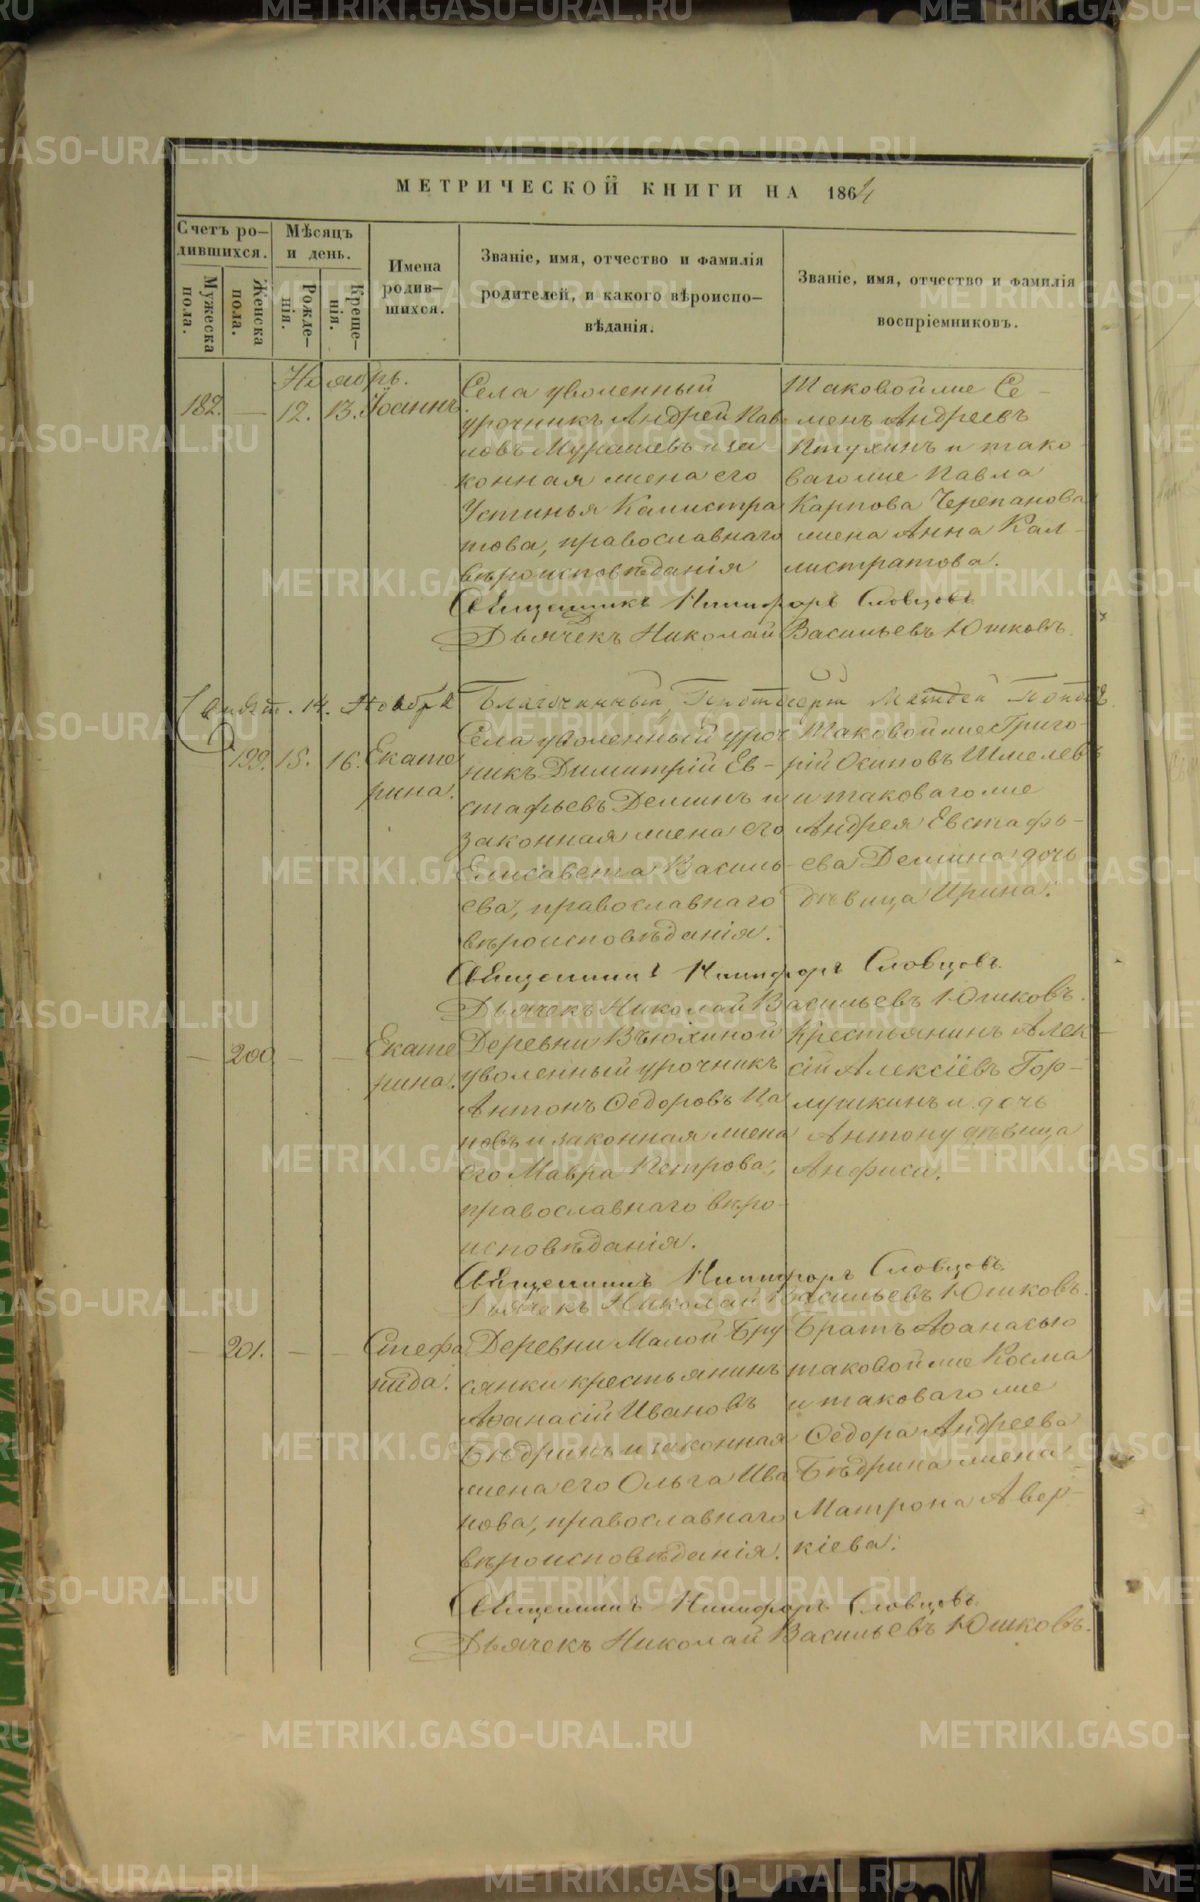 МЕТРИЧЕСКОЙ КНИГИ НА 1864
Счетъ ро-
дившихся.
Мѣсяцъ
и день.
Имена
родив-
шихся.
Званіе, имя, отчество и фамилія
родителей, и какого вѣроиспо-
вѣданія.
Званіе, имя, отчество и фамилія
воспріемниковъ.
Мужеска
пола.
Женска
пола.
Рожде-
нія.
Креще-
нія.
Ноябрь.
182. — 12. 13. Іоаннъ.
Села уволенный
урочникъ Андрей Пав-
ловъ Мурашевъ и за
конная жена его
Устинья Калистра
това, православнаго
вѣроисповѣданія
Таковой же Се-
менъ Андреевъ
Птухинъ и тако-
ваго же Павла
Карпова Черепанова
жена Анна Кал-
листратова.
Священникъ Никифоръ Словцовъ
Дьячекъ Николай Васильевъ Юшковъ.
14. Ноября Благочинный, Протоіерей Матвей Поповъ
199. 15. 16. Екате
рина.
Села уволенный уроч
никъ Димитрій Ев-
стафьевъ Деминъ и
законная жена его
Елисавета Василь-
ева, православнаго
вѣроисповѣданія.
Таковой же Григо-
рій Осиповъ Шмелевъ
и таковаго же
Андрея Евстафь-
ева Демина дочь
дѣвица Ирина.
Священникъ Никифоръ Словцовъ.
Дьячекъ Николай Васильевъ Юшковъ.
— 200 — — Екате
рина.
Деревни Вьюхиной
уволенный урочникъ
Антонъ Ѳедоровъ Па
новъ и законная жена
его Мавра Петрова,
православнаго вѣро-
исповѣданія.
Крестьянинъ Алек
сій Алексіевъ Гор-
лушкинъ и дочь
Антону дѣвица
Анфиса.
Священникъ Никифоръ Словцовъ.
Дьячекъ Николай Васильевъ Юшковъ.
— 201. — — Стефа
нида.
Деревни Малой Бру
сянки крестьянинъ
Аѳанасій Ивановъ
Бѣдринъ и законная
жена его Ольга Ива
нова, православнаго
вѣроисповѣданія.
Братъ Аѳанасью
таковой же Косма
и таковаго же
Ѳедора Андреева
Бѣдрина жена
Матрона Авер-
кіева.
Священникъ Никифоръ Словцовъ.
Дьячекъ Николай Васильевъ Юшковъ.
METRIKI.GASO-URAL.RU